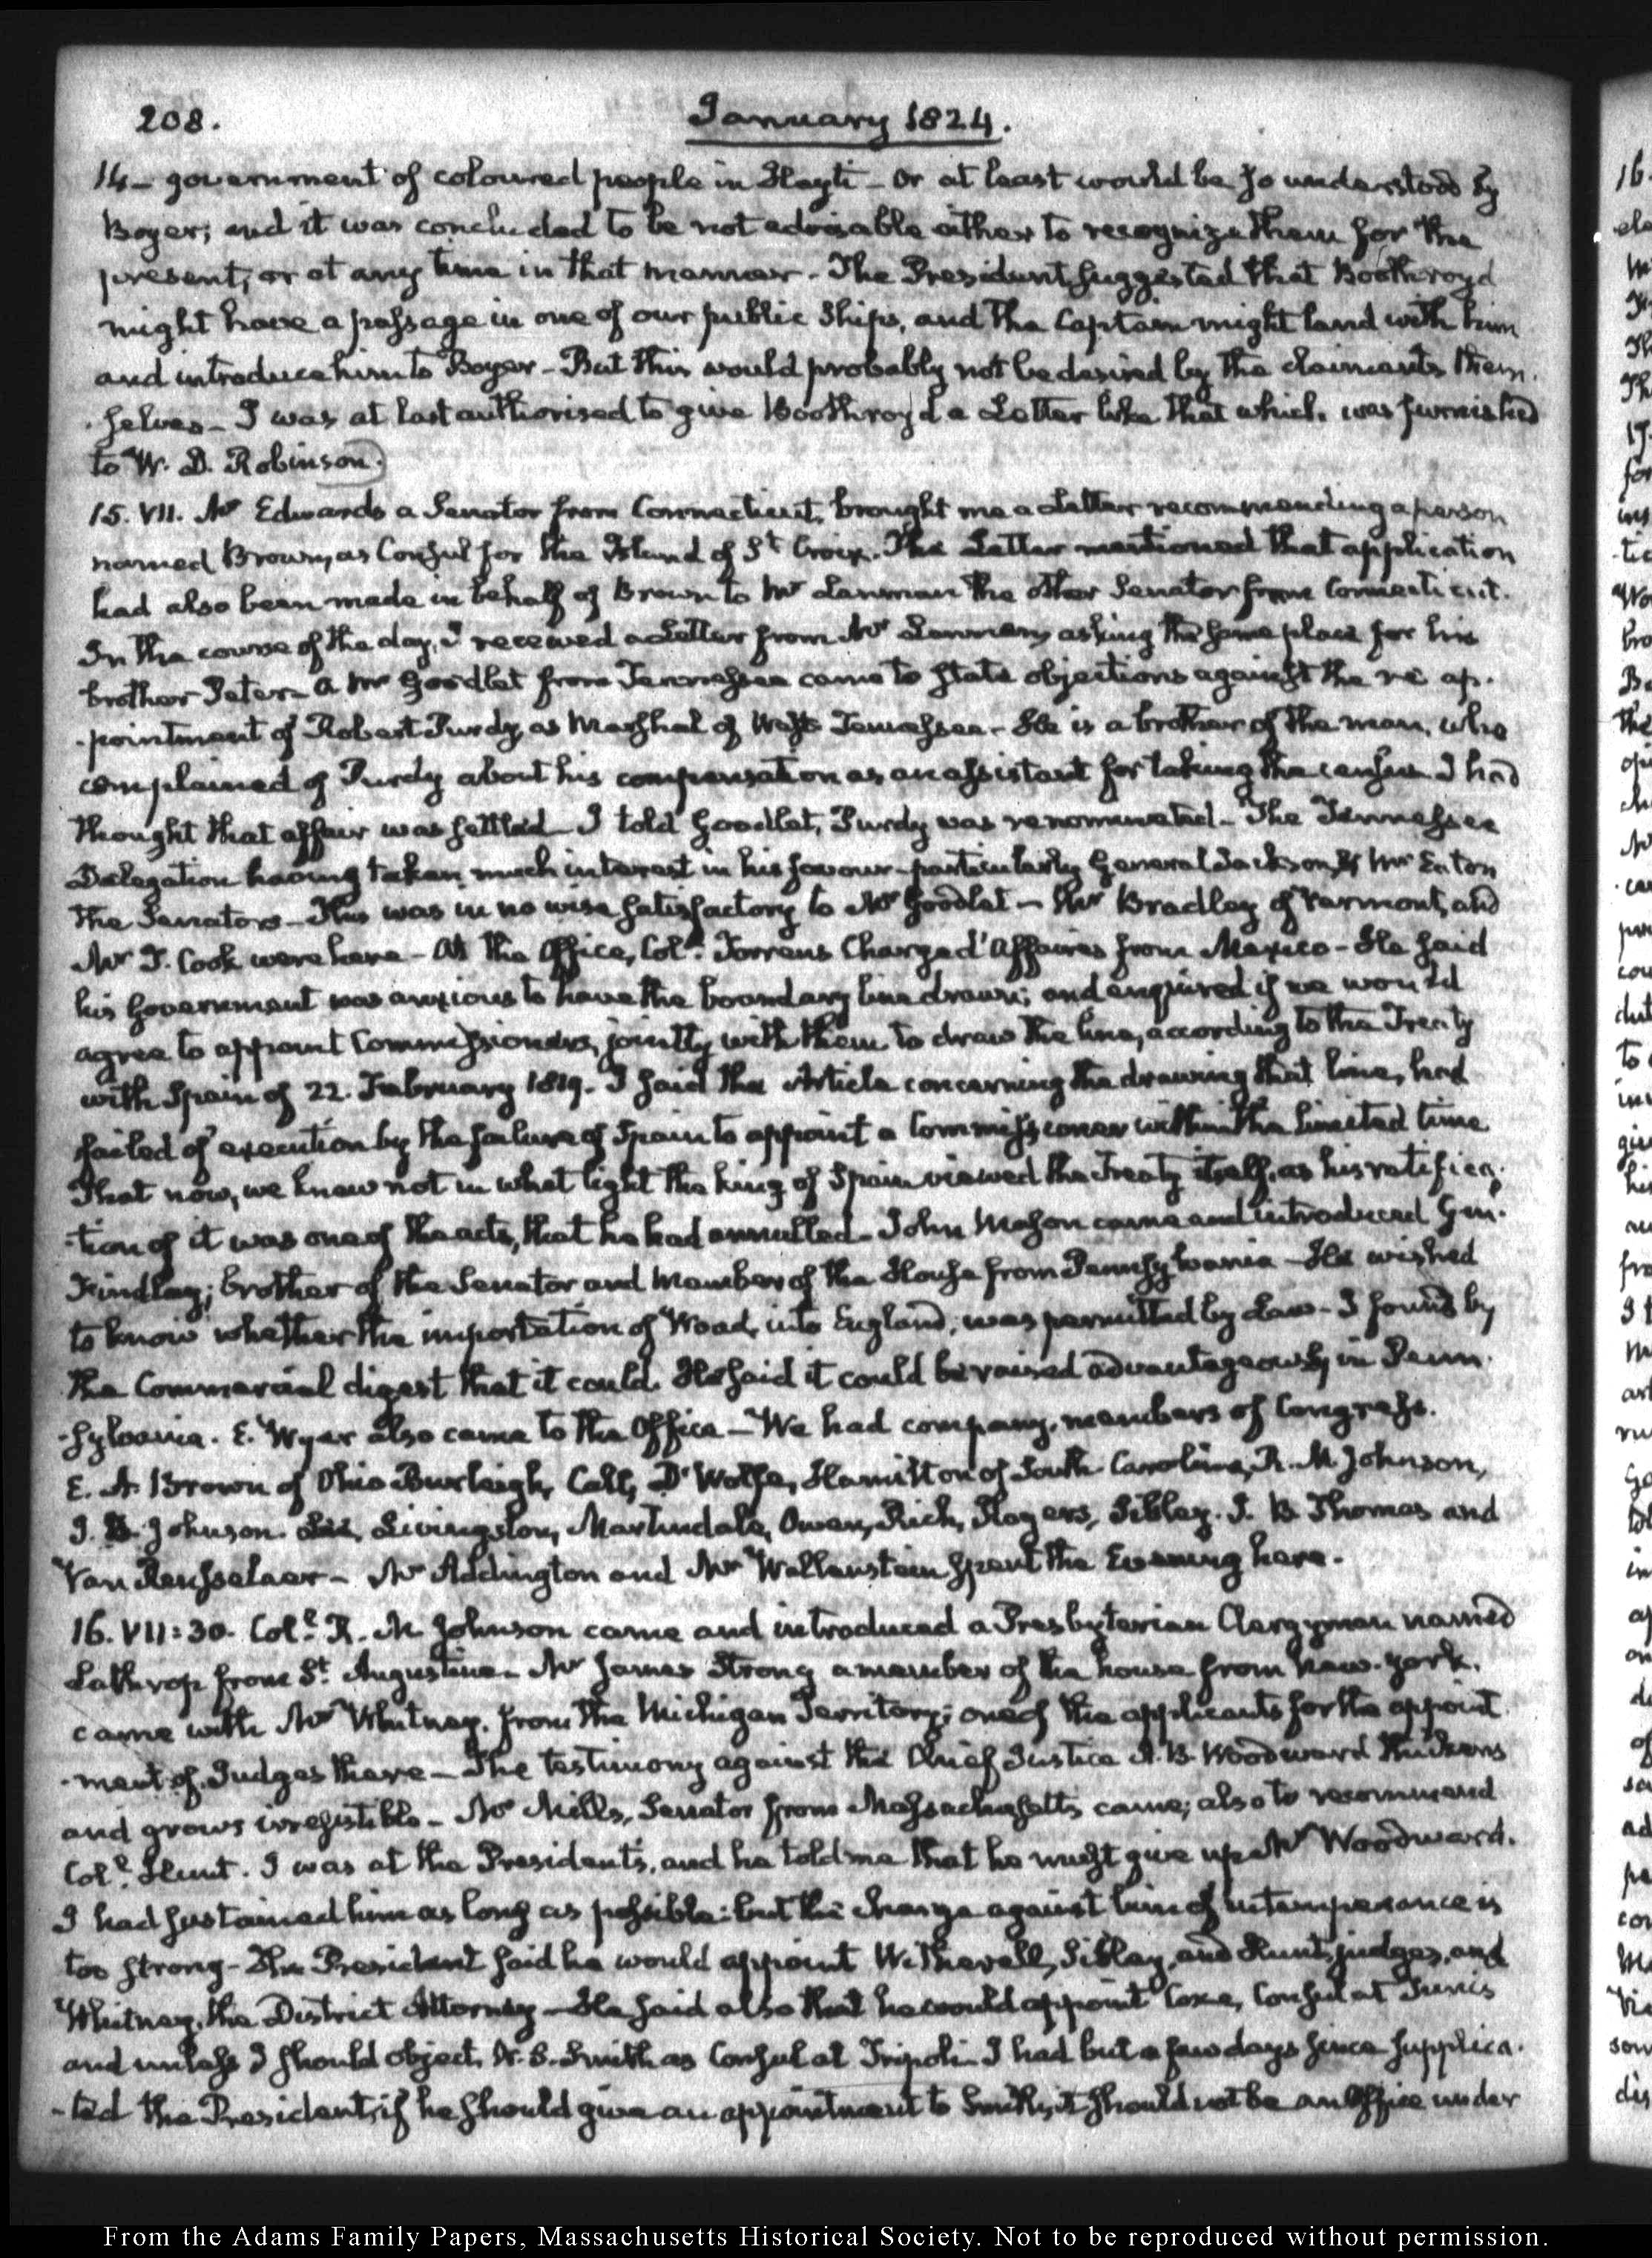 208.
January 1824.
14 - government of coloured people in Hayti - or at least would be so understood by
Boyer; and it was concluded to be not advisable either to recognize them for the
present, or at any time in that manner. The President suggested that Boothroyd
might have a passage in one of our public Ships, and the Captain might land with him
and introduce him to Boyer - But this would probably not be desired by the claimants them-
-selves - I was at last authorised to give Boothroyd a Letter like that which was furnished
to W. D. Robinson.
15. VII. Mr Edwards a Senator from Connecticut, brought me a Letter recommending a person
named Brown, as Consul for the Island of St Croix. The Letter mentioned that application
had also been made in behalf of Brown to Mr Lanman the other Senator from Connecticut.
In the course of the day, I received a Letter from Mr Lanman, asking the same place for his
brother Peter - A Mr Goodlet from Tennessee came to state objections against the re ap-
-pointment of Robert Purdy, as Marshal of West Tennessee - He is a brother of the man, who
complained of Purdy about his compensation as an assistant for taking the census I had
thought that affair was settled - I told Goodlet, Purdy was renominated - The Tennessee
Delegation having taken much interest in his favour - particularly General Jackson, & Mr Eaton
the Senators - This was in no wise satisfactory to Mr Goodlet - Mr Bradley of Vermont, and
Mr J. Cook were here - At the Office, Coll. Torrens Chargé d'Affaires from Mexico - He said
his Government was anxious to have the boundary line drawn; and enquired if we would
agree to appoint Commissioners, jointly with them to draw the line, according to the Treaty
with Spain of 22. February 1819. I said the Article concerning the drawing that line, had
failed of execution by the failure of Spain to appoint a Commissioner within the limited time
That now, we knew not in what light the king of Spain viewed the Treaty itself, as his ratifica-
-tion of it was one of the acts, that he had annulled - John Mason came and introduced Gen.
Findlay; brother of the Senator and Member of the House from Pennsylvania - He wished
to know whether the importation of Woad, into England, was permitted by Law - I found by
the Commercial digest that it could. He said it could be raised advantageously in Penn-
-sylvania. E. Wyer also came to the Office - We had company, members of Congress.
E. A. Brown of Ohio Burleigh, Call, D'Wolfe, Hamilton of South Carolina, R. M. Johnson,
J. Johnson. Livingston, Martindale, Owen, Rich, Rogers, Sibley. J. B Thomas and
Van Rensselaer - Mr Addington and Mr Wallenstein spent the Evening here.
16. VII:30. Coll. R. M Johnson came and introduced a Presbyterian Clergyman named
Lathrop from St. Augustine - Mr James Strong a member of the house from New-York,
came with Mr Whitney, from the Michigan Territory; one of the applicants for the appoint-
-ment of Judges there - The testimony against the Chief Justice A. B. Woodward thickens
and grows irresistible - Mr Mills, Senator from Massachusetts came; also to recommend
Coll. Hunt. I was at the Presidents, and he told me that he must give up Mr Woodward.
I had sustained him as long as possible: but the charge against him of intemperance is
too strong - The President said he would appoint Witherell, Sibley, and Hunt, judges, and
Whitney, the District Attorney - He said also that he would appoint Coxe, Consul at Tunis
and unless I should object, Smith as Consul at Tripoli - I had but a few days since supplica-
-ted the President, if he should give an appointment to Smith, it should not be an Office under
From the Adams Family Papers, Massachusetts Historical Society. Not to be reproduced without permission.